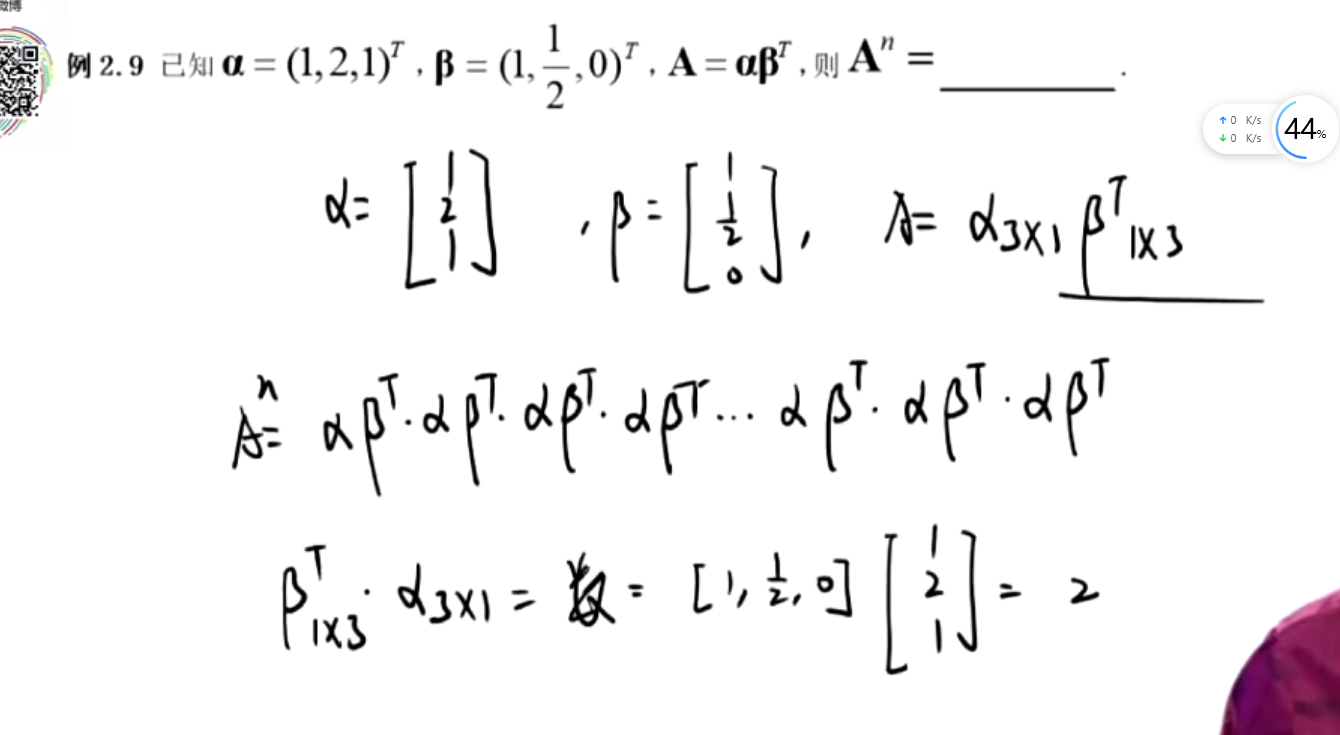 微博
例 2.9 已知 α = (1,2,1)ᵀ , β = (1, 1/2, 0)ᵀ , A = αβᵀ , 则 Aⁿ = ________ .
↑ 0 K/s
↓ 0 K/s
44%
α = [1 2 1] , β = [1 1/2 0] , A = α₃ₓ₁ βᵀ₁ₓ₃
Aⁿ = αβᵀ · αβᵀ · αβᵀ · αβᵀ ... αβᵀ · αβᵀ · αβᵀ
βᵀ₁ₓ₃ · α₃ₓ₁ = 数 = [1, 1/2, 0] [1 2 1] = 2